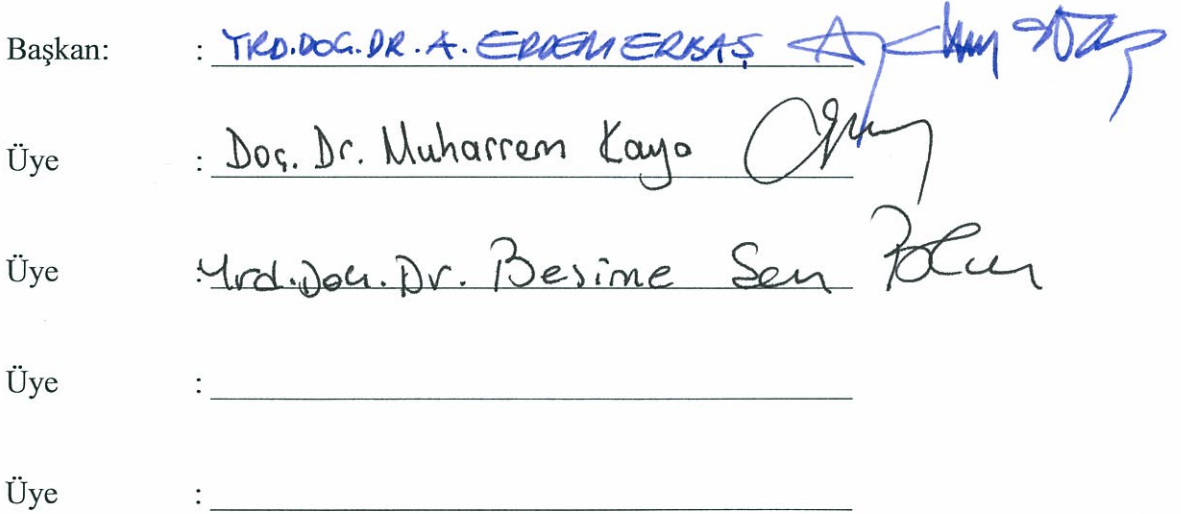 Başkan: : YRD.DOÇ.DR. A. ERDEM ERBAŞ
Üye : Doç. Dr. Muharrem Kaya
Üye : Yrd.Doç.Dr. Besime Şen
Üye :
Üye :